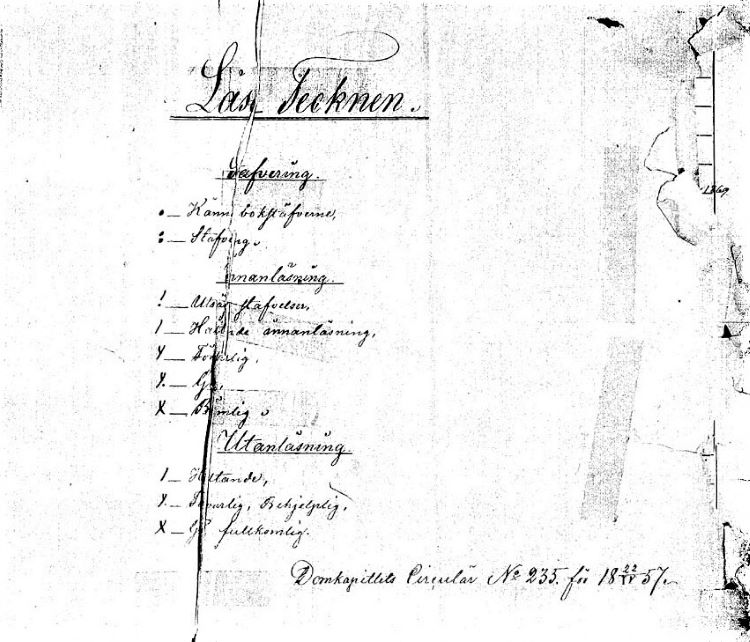 Läs Tecknen.
Stafvering.
• — Känn. bokstäfverne,
: — Stafveg.
Innanläsning.
! — stafvelser,
| — Haltande innanläsning,
Y — Försvarlig,
Y. — God,
X — Berömlig.
Utanläsning.
| — Haltande,
Y. — Svarlig, Behjelplig,
X — fullkomlig.
1869
Domkapitlets Circulär No 235. för 18 22/IV 57.